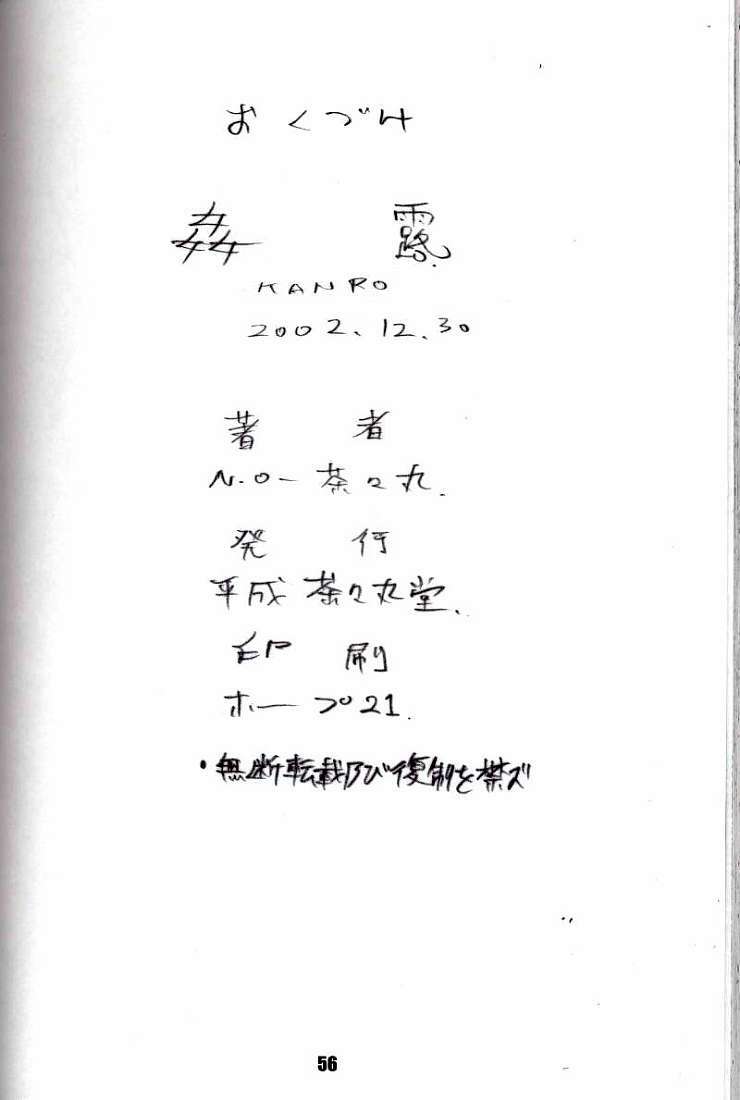 おくづけ
姦 露
KANRO
2002.12.30
著 者
N.O-茶々丸.
発 行
平成 茶々丸堂.
印 刷
ホープ21.
・無断転載及び復制を禁ズ
56